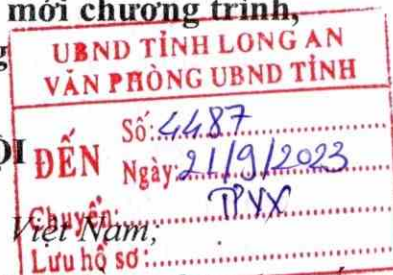 mới chương trình,
g
UBND TỈNH LONG AN
VĂN PHÒNG UBND TỈNH
ỘI
ĐẾN
Số: 4487
Ngày: 21/9/2023
Chuyển:
Việt Nam;
Lưu hồ sơ: